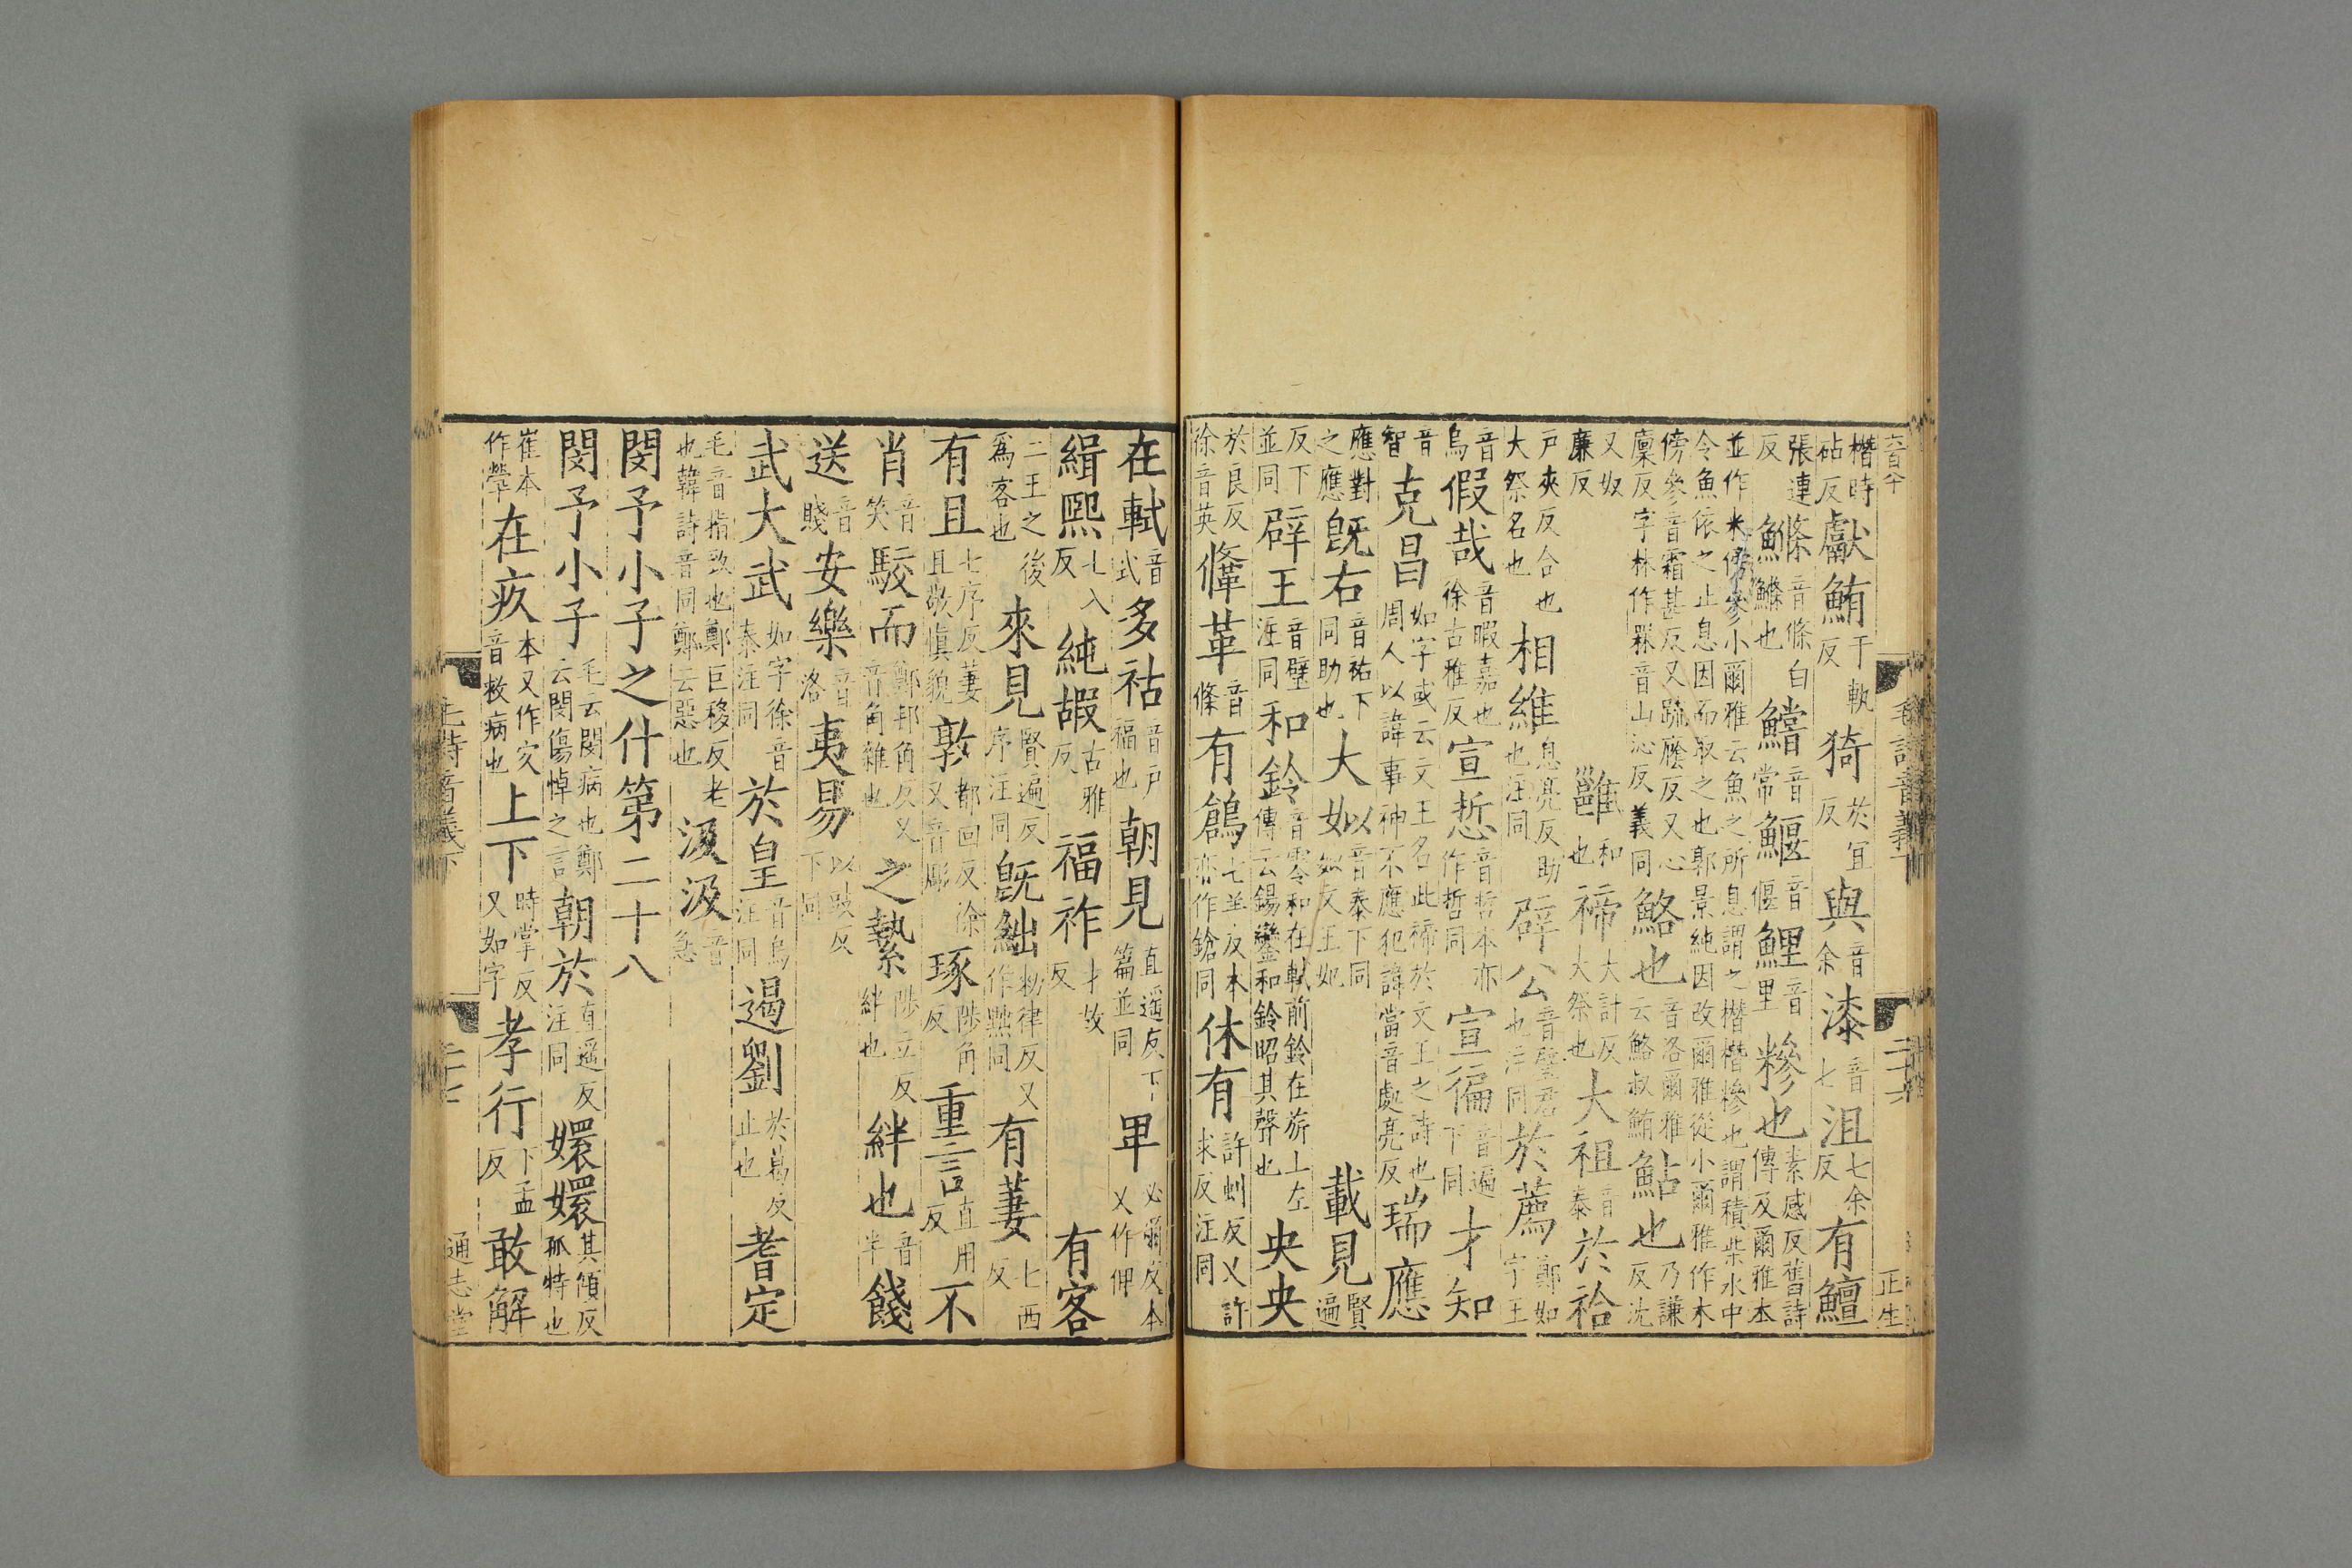 楷時砧反獻鮪于軌反猗於宜反與音余漆音七沮七余反有鱣
張連反鰷音條白鰷也鱨音常鰋音偃鯉音里糝也素感反舊詩傳及爾雅本
並作米傍參小爾雅云魚之所息謂之橬橬槮也謂積柴水中令魚依之止息因而取之也郭景純因改爾雅從小爾雅作木
傍參音霜甚反又疏廕反又心廩反字林作罧音山沁反義同鮥也音洛爾雅云鮥叔鮪鮎也乃謙反沈
又奴廉反雝和也禘大計反大祭也大祖音泰於祫
戶夾反合也大祭名也相維息亮反助也注同辟公音璧君也注同於薦鄭如字王
音烏假哉音暇嘉也徐古雅反宣悊音哲本亦作哲同宣徧音遍下同才知
音智克昌如字或云文王名此禘於文王之詩也周人以諱事神不應犯諱當音處亮反瑞應
應對之應既右音祐下同助也大姒以音泰下同姒反王妃載見賢遍
反下並同辟王音璧注同和鈴音零和在軾前鈴在旂上左傳云錫鸞和鈴昭其聲也央央
於良反徐音英鞗革音條有鶬七羊反本亦作鎗同休有許虯反又許求反注同
在軾音式多祜音戶福也朝見直遥反下篇並同卑必爾反本又作俾
緝熙七入反純嘏古雅反福祚才故反有客
二王之後爲客也來見賢遍反序注同既絀勑律反又作黜同有萋七西反
有且七序反萋且敬慎貌敦都回反徐又音彫琢陟角反重言直用反不
肖音笑駮而鄭邦角反又音角雜也之縶陟立反絆也絆也音半餞
送音賤安樂音洛夷易以豉反下同
武大武如字徐音泰注同於皇音烏注同遏劉於葛反止也耆定
毛音指致也鄭巨移反老也韓詩音同鄭云惡也汲汲音急
閔予小子之什第二十八
閔予小子毛云閔病也鄭云閔傷悼之言朝於直遥反注同嬛嬛其傾反孤特也
崔本作煢在疚本又作㝌音救病也上下時掌反又如字孝行下孟反敢解
毛詩音義下
通志堂